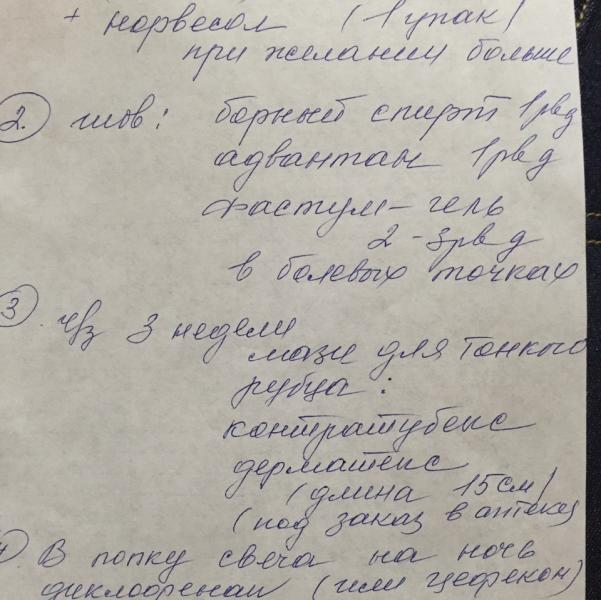 + норвесол (1 упак)
при желании больше
2. шов: борный спирт 1 р в д
адвантан 1 р в д
фастум-гель
2-3 р в д
в болевых точках
3. чрз 3 недели
мази для тонкого
рубца:
контратубекс
дерматекс
(длина 15 см)
(под заказ в аптеке)
4 В попку свеча на ночь
диклофенак (или цефекон)